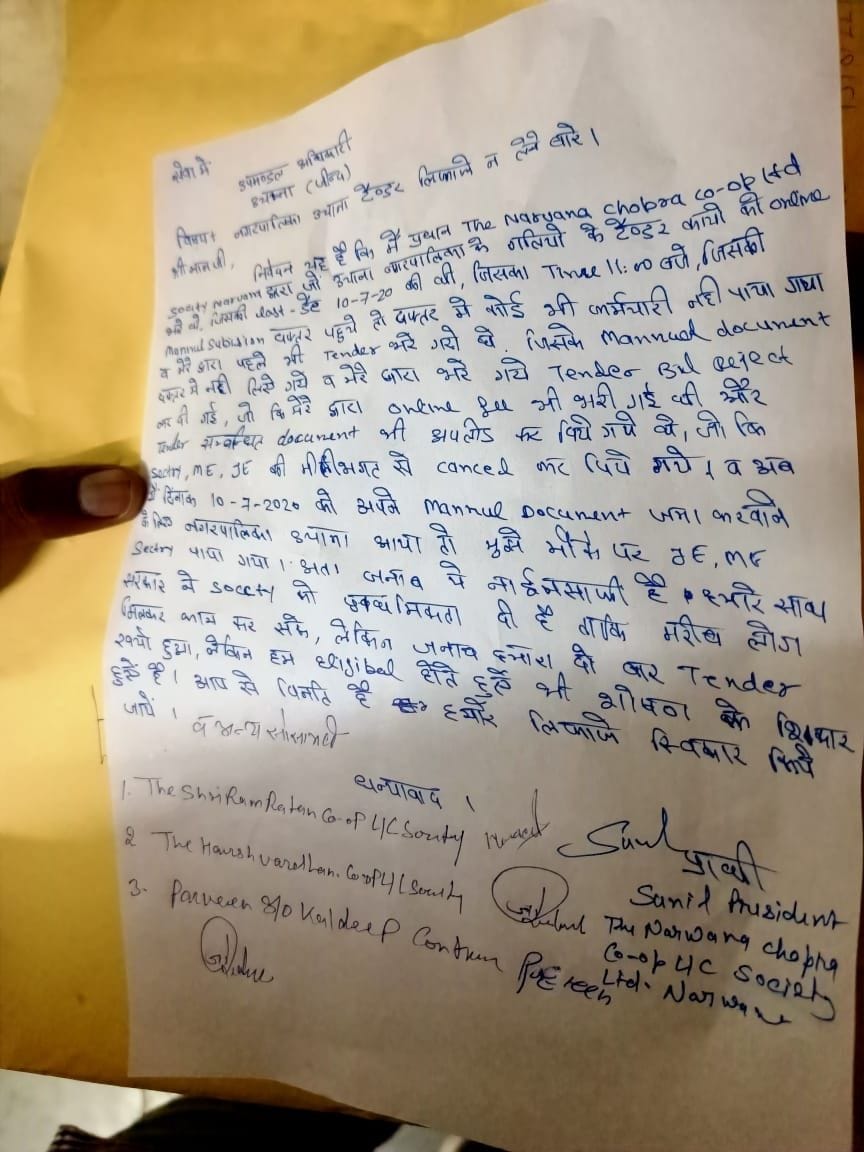 सेवा में
उपमण्डल अधिकारी
उचाना (जीन्द)
विषय: नगरपालिका उचाना टैण्डर लिफाफे न लेने बारे।
श्री मान जी,
निवेदन यह है कि मैं प्रधान The Narwana chobra co-op Ltd
Socity Narwana द्वारा जो उचाना नगरपालिका के गलियो के टैण्डर कार्यो की online
भरे थे, जिसकी last-डेट 10-7-20 की थी, जिसका Time 11:00 बजे, जिसकी
Mannul Subission दफ्तर पहुचे तो दफ्तर मे कोई भी कर्मचारी नही पाया गया
व मेरे द्वारा पहले भी Tender भरे गये थे. जिसके Mannual document
दफ्तर मे नही लिये गये व मेरे द्वारा भरे गये Tender Bid Reject
कर दी गई, जो कि मेरे द्वारा online fee भी भरी गई थी और
Tender सम्बन्धित document भी अपलोड कर दिये गये थे, जो कि
Sectry, ME, JE की मीलीभगत से canced कर दिये गये। व अब
मैं दिनांक 10-7-2020 को अपने Mannul Document जमा करवाने
के लिए नगरपालिका उचाना आया तो मुझे मौके पर JE, ME
Sectry पाया गया। अतः जनाब ये नाईनसाफी है हमारे साथ
सरकार ने socety को प्राथमिकता दी है ताकि गरीब लोग
मिलकर काम कर सके, लेकिन जनाब हमारा दो बार Tender
खर्चा हुआ, लेकिन हम eligibal होते हुऐ भी शोषण के शिकार
हुऐ है। आप से विनति है हमारे लिफाफे स्विकार किये
जाये।
व अन्य सोसायटी
धन्यवाद।
1. The Shri Ram Ratan Co-op L/C Socity
2 The Harshvardhan. Co-op L/C Socity
3. Parveen S/O Kuldeep Contrun
Parveen
Sunil
प्रार्थी
Sunil President
The Narwana chopra
Co-op L/C Society
Ltd. Narwana